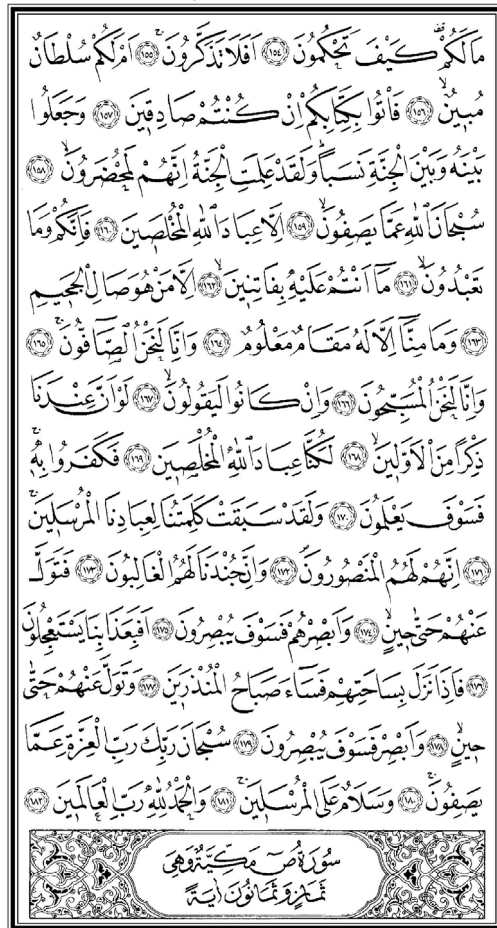 مَالَكُمْ كَيْفَ تَحْكُمُونَ ﴿١٥٤﴾ اَفَلَا تَذَكَّرُونَ ﴿١٥٥﴾ اَمْ لَكُمْ سُلْطَانٌ
مُبِينٌ ﴿١٥٦﴾ فَأْتُوا بِكِتَابِكُمْ اِنْ كُنْتُمْ صَادِقِينَ ﴿١٥٧﴾ وَجَعَلُوا
بَيْنَهُ وَبَيْنَ الْجِنَّةِ نَسَبًا وَلَقَدْ عَلِمَتِ الْجِنَّةُ اِنَّهُمْ لَمُحْضَرُونَ ﴿١٥٨﴾
سُبْحَانَ اللّٰهِ عَمَّا يَصِفُونَ ﴿١٥٩﴾ اِلَّا عِبَادَ اللّٰهِ الْمُخْلَصِينَ ﴿١٦٠﴾ فَاِنَّكُمْ وَمَا
تَعْبُدُونَ ﴿١٦١﴾ مَا اَنْتُمْ عَلَيْهِ بِفَاتِنِينَ ﴿١٦٢﴾ اِلَّا مَنْ هُوَ صَالِ الْجَحِيمِ
﴿١٦٣﴾ وَمَا مِنَّا اِلَّا لَهُ مَقَامٌ مَعْلُومٌ ﴿١٦٤﴾ وَاِنَّا لَنَحْنُ الصَّافُّونَ ﴿١٦٥﴾
وَاِنَّا لَنَحْنُ الْمُسَبِّحُونَ ﴿١٦٦﴾ وَاِنْ كَانُوا لَيَقُولُونَ ﴿١٦٧﴾ لَوْ اَنَّ عِنْدَنَا
ذِكْرًا مِنَ الْاَوَّلِينَ ﴿١٦٨﴾ لَكُنَّا عِبَادَ اللّٰهِ الْمُخْلَصِينَ ﴿١٦٩﴾ فَكَفَرُوا بِهِ
فَسَوْفَ يَعْلَمُونَ ﴿١٧٠﴾ وَلَقَدْ سَبَقَتْ كَلِمَتُنَا لِعِبَادِنَا الْمُرْسَلِينَ
﴿١٧١﴾ اِنَّهُمْ لَهُمُ الْمَنْصُورُونَ ﴿١٧٢﴾ وَاِنَّ جُنْدَنَا لَهُمُ الْغَالِبُونَ ﴿١٧٣﴾ فَتَوَلَّ
عَنْهُمْ حَتّٰى حِينٍ ﴿١٧٤﴾ وَاَبْصِرْهُمْ فَسَوْفَ يُبْصِرُونَ ﴿١٧٥﴾ اَفَبِعَذَابِنَا يَسْتَعْجِلُونَ
﴿١٧٦﴾ فَاِذَا نَزَلَ بِسَاحَتِهِمْ فَسَاءَ صَبَاحُ الْمُنْذَرِينَ ﴿١٧٧﴾ وَتَوَلَّ عَنْهُمْ حَتّٰى
حِينٍ ﴿١٧٨﴾ وَاَبْصِرْ فَسَوْفَ يُبْصِرُونَ ﴿١٧٩﴾ سُبْحَانَ رَبِّكَ رَبِّ الْعِزَّةِ عَمَّا
يَصِفُونَ ﴿١٨٠﴾ وَسَلَامٌ عَلَى الْمُرْسَلِينَ ﴿١٨١﴾ وَالْحَمْدُ لِلّٰهِ رَبِّ الْعَالَمِينَ ﴿١٨٢﴾
سُورَةُ صٓ مَكِّيَّةٌ وَهِيَ
ثَمَانٍ وَثَمَانُونَ اٰيَةً